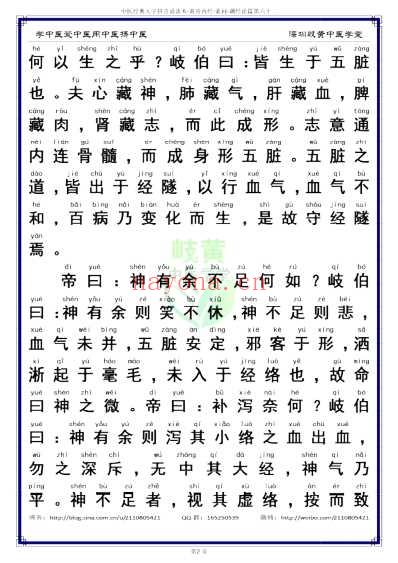 学中医爱中医用中医 深圳岐黄中医学堂
hé yǐ shēng zhī hū qí bó yuē jiē shēng yú wǔ zàng
何以生之乎？岐伯曰：皆生于五脏
yě fū xīn cáng shén fèi cáng qì gān cáng xuè pí
也。夫心藏神，肺藏气，肝藏血，脾
cáng ròu shèn cáng zhì ér cǐ chéng xíng zhì yì tōng
藏肉，肾藏志，而此成形。志意通
nèi lián gǔ suǐ ér chéng shēn xíng wǔ zàng wǔ zàng zhī
内连骨髓，而成身形五脏。五脏之
dào jiē chū yú jīng suì yǐ xíng xuè qì xuè qì bù
道，皆出于经隧，以行血气，血气不
hé bǎi bìng nǎi biàn huà ér shēng shì gù shǒu jīng suì
和，百病乃变化而生，是故守经隧
yān
焉。
dì yuē shén yǒu yú bù zú hé rú qí bó
帝曰：神有余不足何如？岐伯
yuē shén yǒu yú zé xiào bù xiū shén bù zú zé bēi
曰：神有余则笑不休，神不足则悲，
xuè qì wèi bìng wǔ zàng ān dìng xié kè yú xíng sǎ
血气未并，五脏安定，邪客于形，洒
xī qǐ yú háo máo wèi rù yú jīng luò yě gù mìng
淅起于毫毛，未入于经络也，故命
yuē shén zhī wēi dì yuē bǔ xiè nài hé qí bó
曰神之微。帝曰：补泻奈何？岐伯
yuē shén yǒu yú zé xiè qí xiǎo luò zhī xuè chū xuè
曰：神有余则泻其小络之血出血，
wù zhī shēn chì wú zhòng qí dà jīng shén qì nǎi
勿之深斥，无中其大经，神气乃
píng shén bù zú zhě shì qí xū luò àn ér zhì
平。神不足者，视其虚络，按而致
岐黄
nayona.cn
博客：http://blog.sina.com.cn/u/2110805421 QQ群：165250539 微博：http://weibo.com/2110805421
第2页